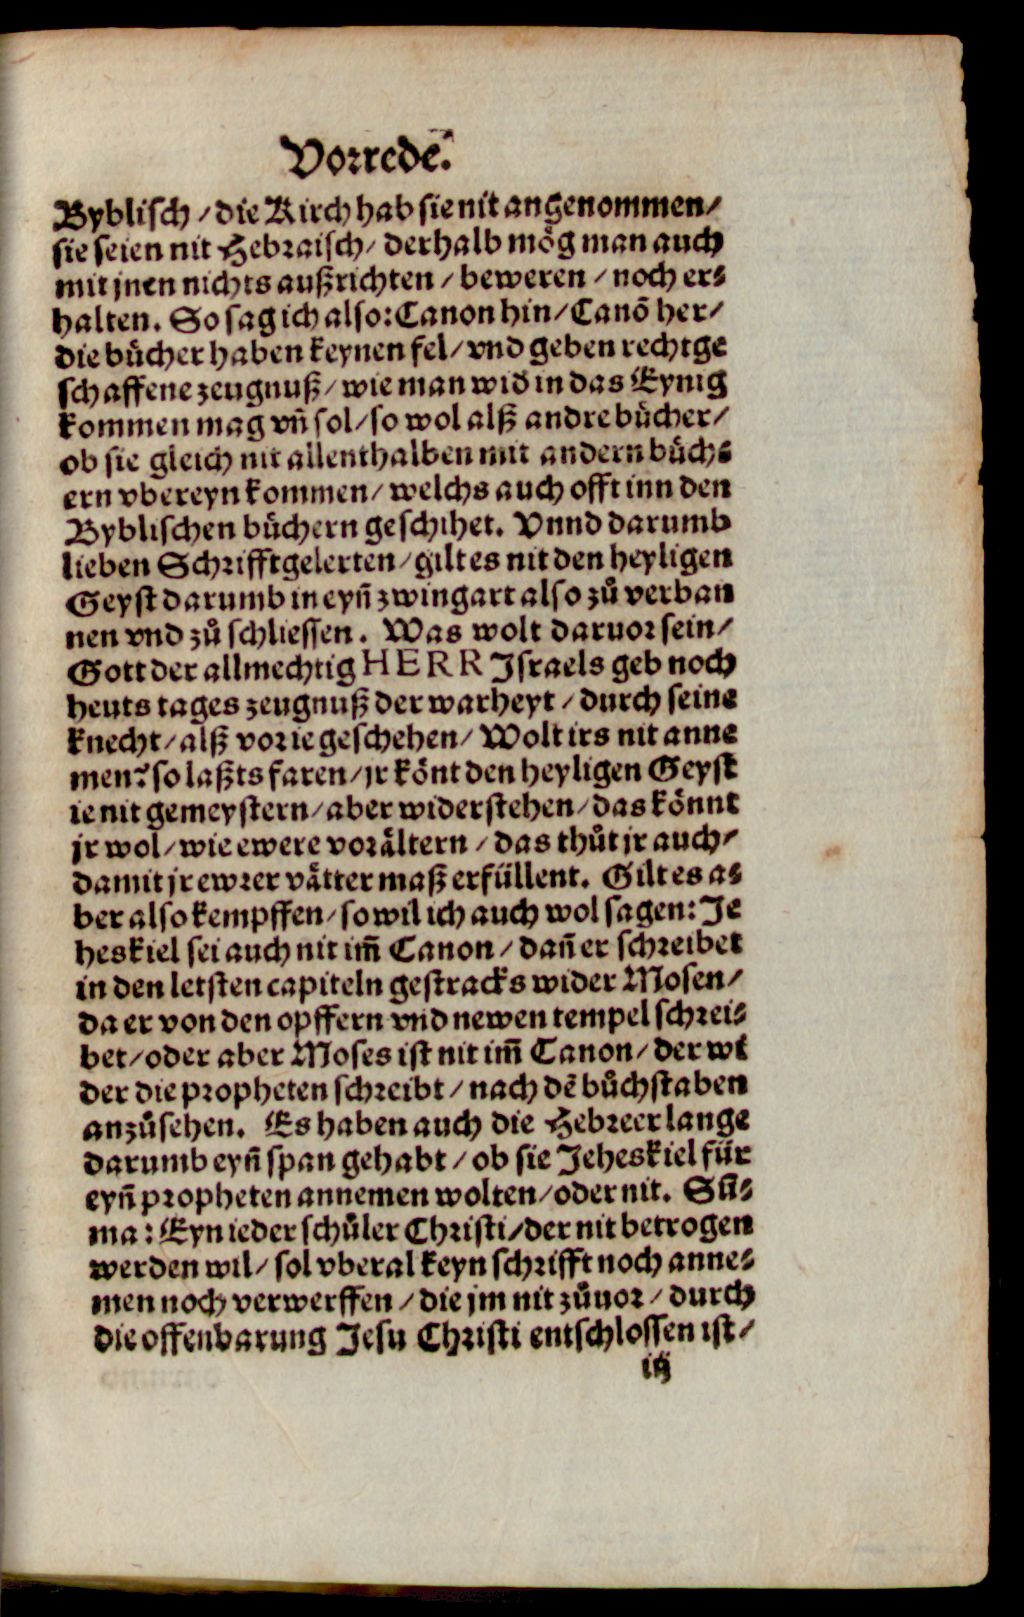 Vorrede.
Byblisch / die Kirch hab sie nit angenommen /
sie seien nit Hebraisch / derhalb mög man auch
mit jnen nichts außrichten / beweren / noch er⸗
halten. So sag ich also: Canon hin / Canō her /
die bücher haben keynen fel / vnd geben rechtge
schaffene zeugnuß / wie man wid in das Eynig
kommen mag vñ sol / so wol alß andre bücher /
ob sie gleich nit allenthalben mit andern büch⸗
ern vbereyn kommen / welchs auch offt inn den
Byblischen büchern geschihet. Vnnd darumb
lieben Schrifftgelerten / gilt es nit den heyligen
Geyst darumb in eyñ zwingart also zů verban
nen vnd zů schliessen. Was wolt daruor sein /
Gott der allmechtig HERR Israels geb noch
heuts tages zeugnuß der warheyt / durch seine
knecht / alß vor ie geschehen / Wolt irs nit anne
men? so laßts faren / jr könt den heyligen Geyst
ie nit gemeystern / aber widerstehen / das könnt
jr wol / wie ewere vorältern / das thůt jr auch /
damit jr ewrer vätter maß erfüllent. Gilt es a⸗
ber also kempffen / so wil ich auch wol sagen: Je
heskiel sei auch nit im̃ Canon / dañ er schreibet
in den letsten capiteln gestracks wider Mosen /
da er von den opffern vnd newen tempel schrei⸗
bet / oder aber Moses ist nit im̃ Canon / der wi
der die propheten schreibt / nach dē bůchstaben
anzůsehen. Es haben auch die Hebreer lange
darumb eyñ span gehabt / ob sie Jeheskiel für
eyñ propheten annemen wolten / oder nit. Sũ⸗
ma: Eyn ieder schůler Christi / der nit betrogen
werden wil / sol vberal keyn schrifft noch anne⸗
men noch verwerffen / die jm nit zůuor / durch
die offenbarung Jesu Christi entschlossen ist /
iij